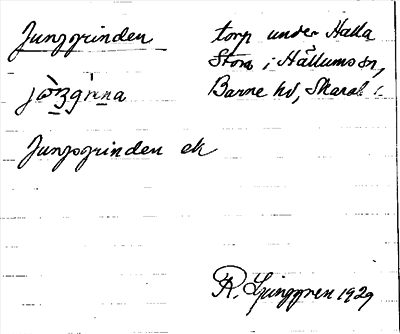 Jungsgrinden
torp under Halla
Stom i Hällums sn,
Barne hd, Skarab. l.
Jungsgrinden ek
R. Ljunggren 1929